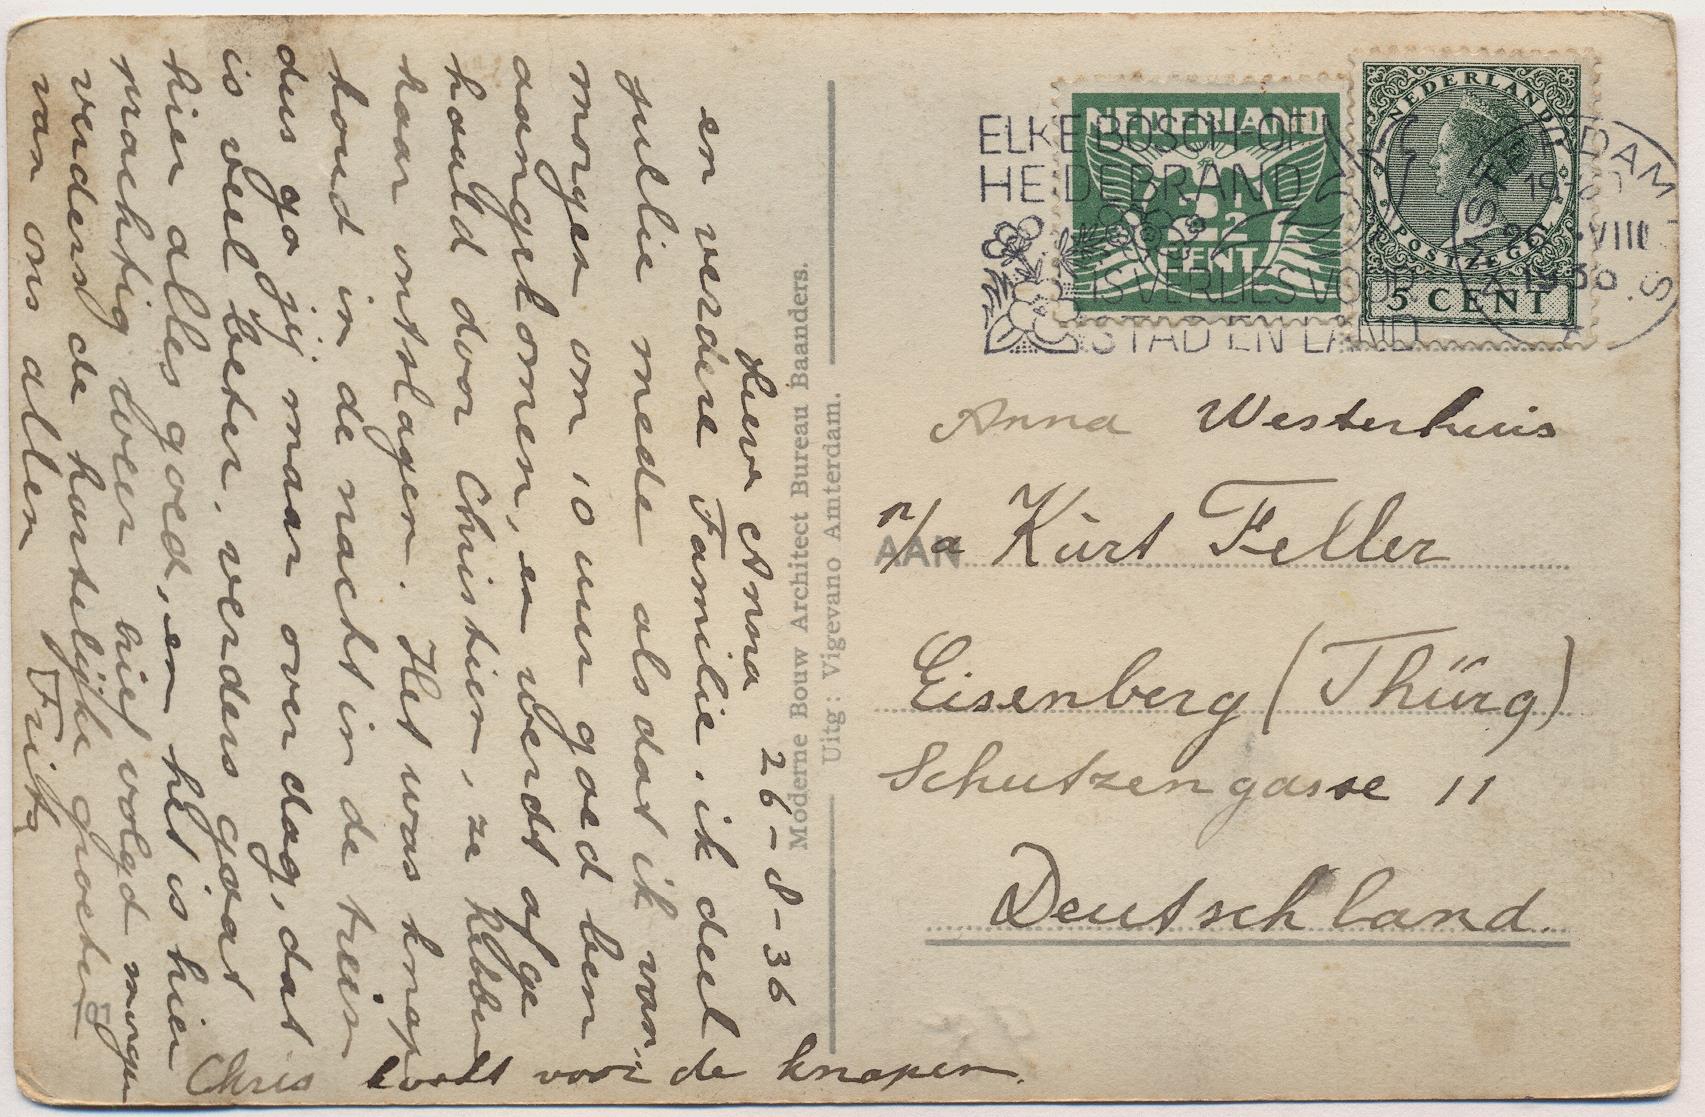 26-8-36
Lieve Anna
en verdere Familie, ik deel
jullie mede als dat ik van
morgen om 10 uur goed ben
aangekomen, en werdt afge
haald door Christien, ze hebben
haar ontslagen. Het was knap
koud in de nacht in de trein
dus ga jij maar over dag, dat
is veel beter, verders gaat
hier alles goed, en het is hier
machtig weer brief volgd morgen
verders de hartelijke groeten
van ons allen Frits
Chris kookt voor de knapen.
Moderne Bouw Architect Bureau Baanders.
Uitg: Vigevano Amterdam.
ELKE BOSCH- OF
HEIDEBRAND
IS VERLIES VOOR
STAD EN LAND
NEDERLAND
2½
CENT
NEDERLAND
POSTZEGEL
5 CENT
AMSTERDAM
26.VIII
1936
AAN
Anna Westerhuis
p/a Kürt Feller
Eisenberg (Thürg)
Schutzengasse 11
Deutschland.